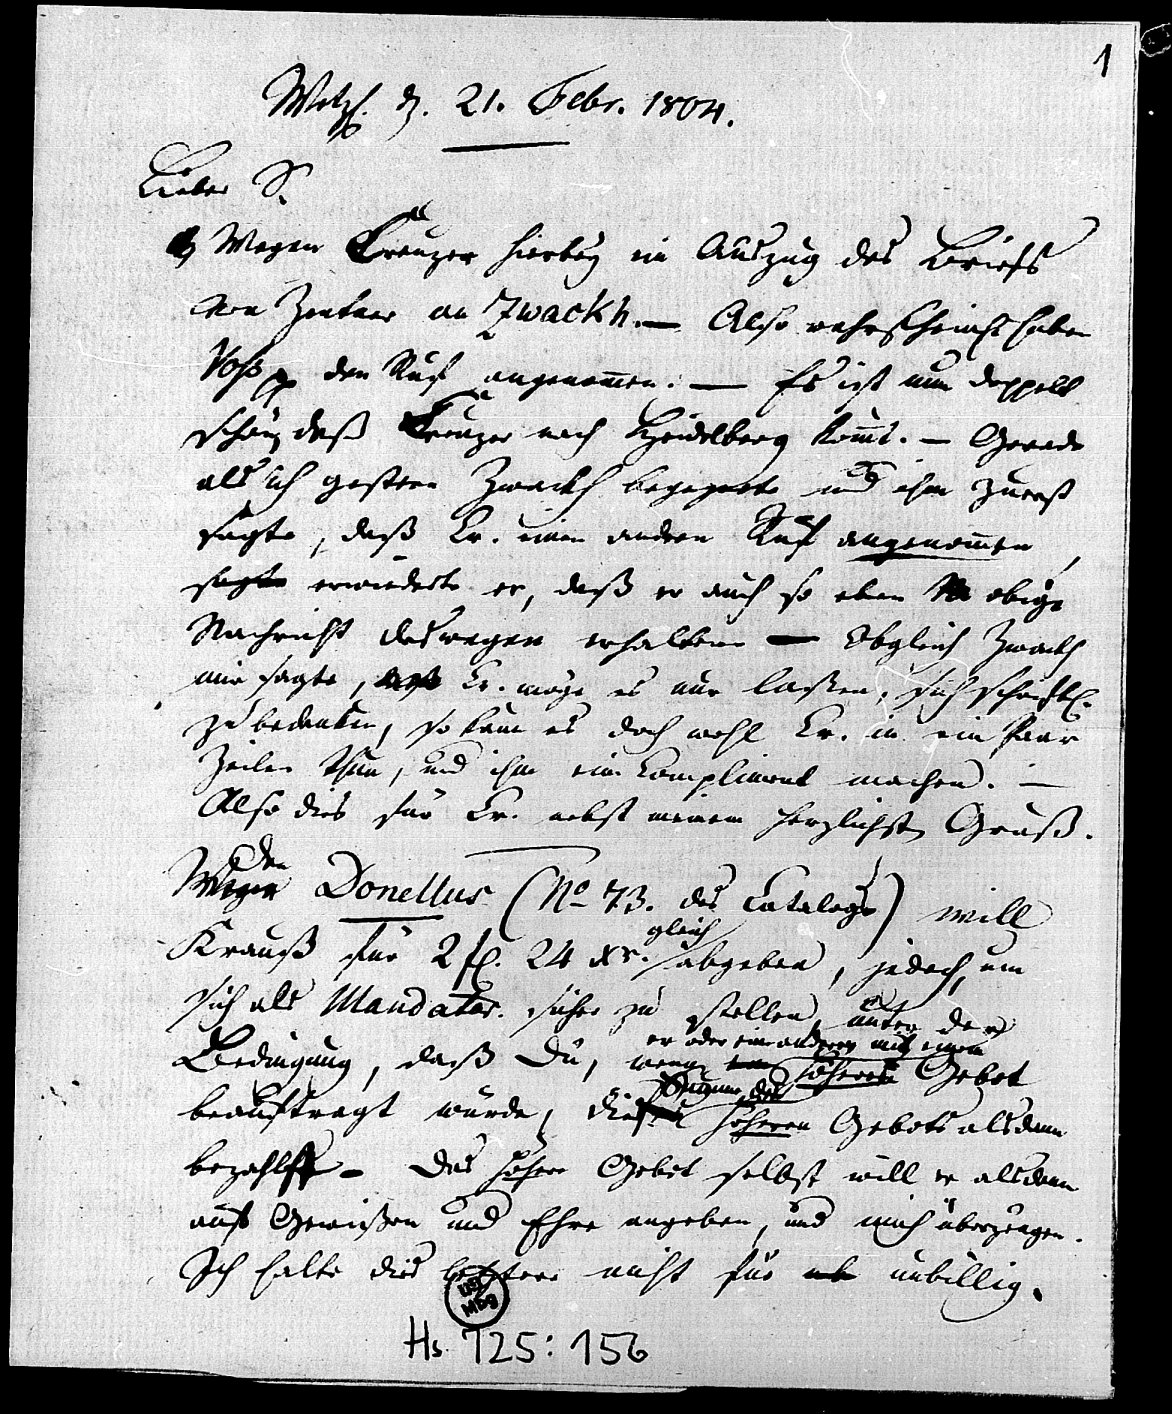 1
Wetzl. d. 21. Febr. 1804.
Lieber S.
Wegen Creuzer hierbey ein Auszug des Briefs
von Zentner an Zwackh. — Also wahrscheinl. haben
Voß pp den Ruf angenommen. — Es ist nun doppelt
schön, daß Creuzer nach Heidelberg kömt. — Gerade
als ich gestern Zwackh begegnete und ihm zuerst
sagte, daß Cr. einen andern Ruf angenommen,
sagte erwiederte er, daß er auch so eben obige
Nachricht deswegen erhalten — Obgleich Zwackh
mir sagte, Cr. möge es nur laßen, sich schriftl.
zu bedanken, so kann es doch wohl Cr. in ein Paar
Zeilen thun, und ihm ein Compliment machen. —
Also dies für Cr. nebst meinem herzlichsten Gruß.
den
Wegen Donellus (No 73. des Catalogs) will
gleich
Krauß für 2 fl. 24 xr. abgeben, jedoch, um
sich als Mandatar. sicher zu stellen, unter der
er oder ein anderer mit einem
Bedingung, daß Du, wenn höheren Gebot
Summe des
beauftragt würde, die höheren Gebots alsdann
bezahlst — Das höhere Gebot selbst will er alsdann
aufs Gewißen und Ehre angeben, und mich überzeugen.
Ich halte dies letztere nicht für unbillig.
UB
Mbg
Hs 725:156